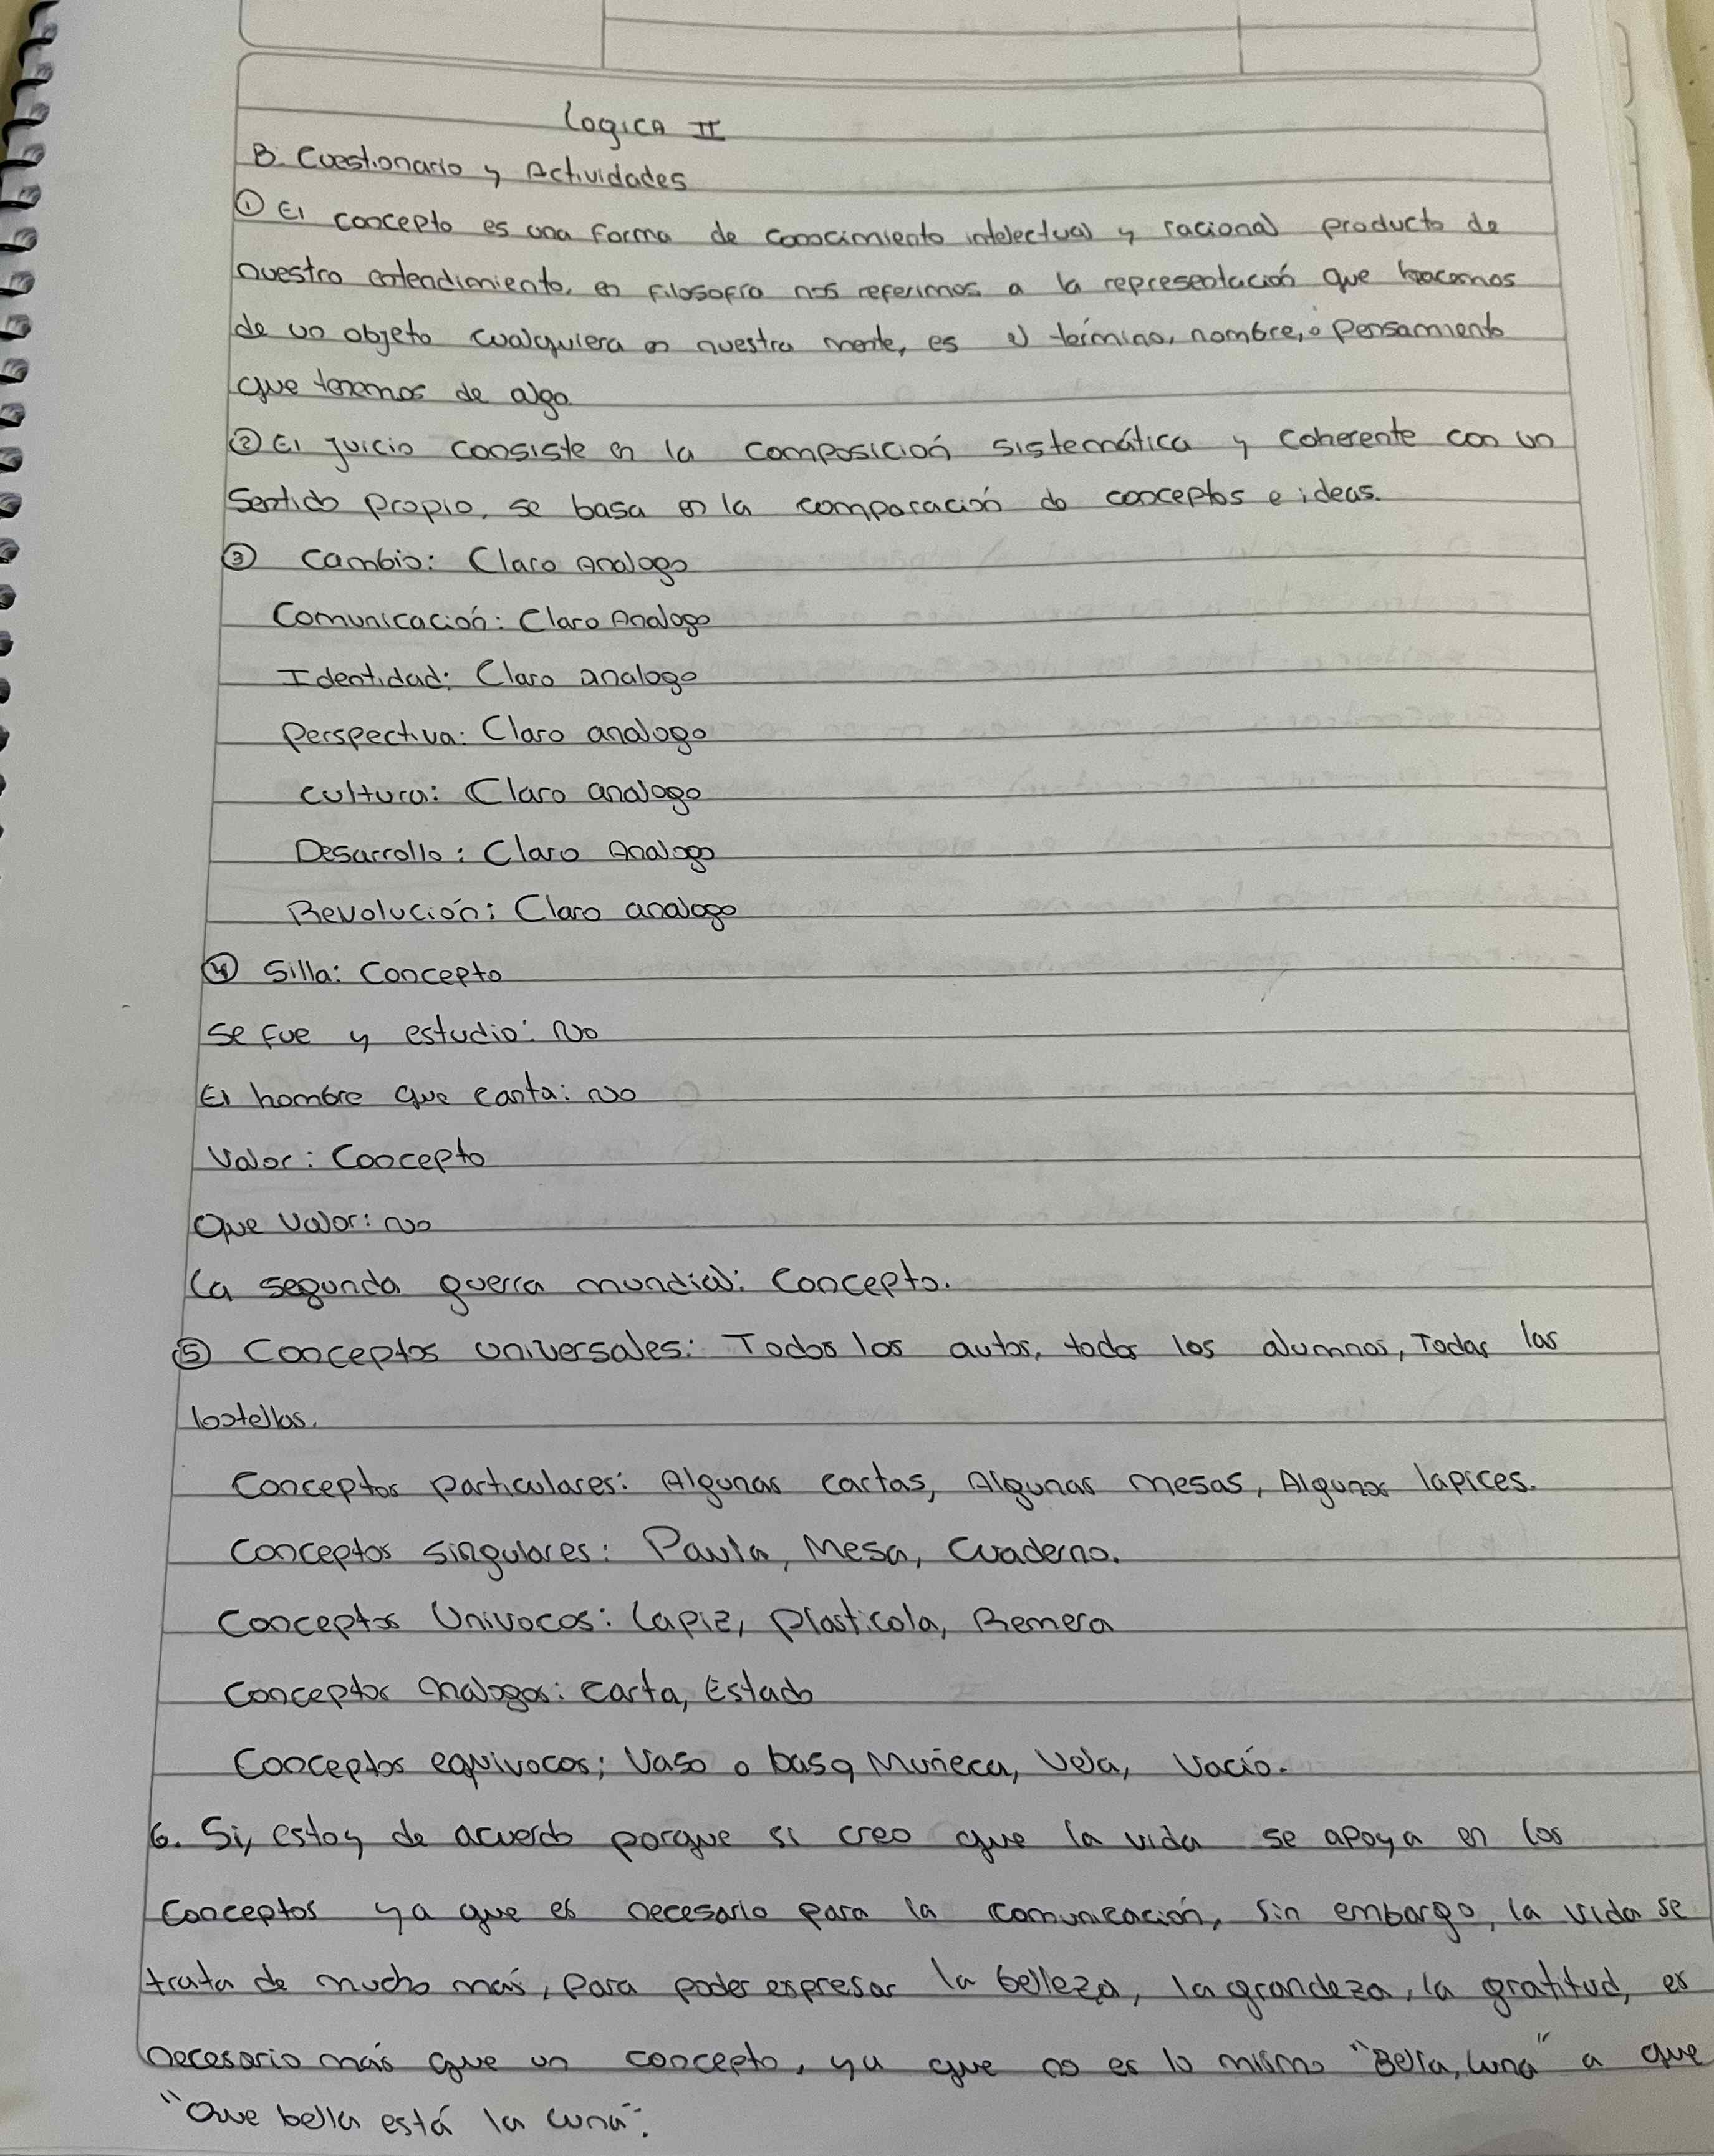 Logica II
B. Cuestionario y Actividades
① El concepto es una forma de conocimiento intelectual y racional producto de
nuestro entendimiento, en filosofía nos referimos a la representación que hacemos
de un objeto cualquiera en nuestra mente, es el término, nombre, o pensamiento
que tenemos de algo.
② El juicio consiste en la composición sistemática y coherente con un
sentido propio, se basa en la comparación de conceptos e ideas.
③ Cambio: Claro Analogo
Comunicación: Claro Analogo
Identidad: Claro analogo
Perspectiva: Claro analogo
cultura: Claro analogo
Desarrollo: Claro Analogo
Revolución: Claro analogo
④ Silla: Concepto
Se fue y estudio: No
El hombre que canta: No
Valor: Concepto
Que valor: No
La segunda guerra mundial: Concepto.
⑤ Conceptos universales: Todos los autos, todos los alumnos, Todas las
botellas.
Conceptos particulares: Algunas cartas, Algunas mesas, Algunos lapices.
Conceptos singulares: Paula, Mesa, Cuaderno.
Conceptos Univocos: Lapiz, plasticola, Remera
Conceptos Analogos: Carta, Estado
Conceptos equivocos; Vaso o baso, Muñeca, Vela, Vacío.
6. Si, estoy de acuerdo porque si creo que la vida se apoya en los
conceptos ya que es necesario para la comunicación, sin embargo, la vida se
trata de mucho más, para poder expresar la belleza, la grandeza, la gratitud, es
necesario más que un concepto, ya que no es lo mismo "Bella, luna" a que
"Que bella está la luna".